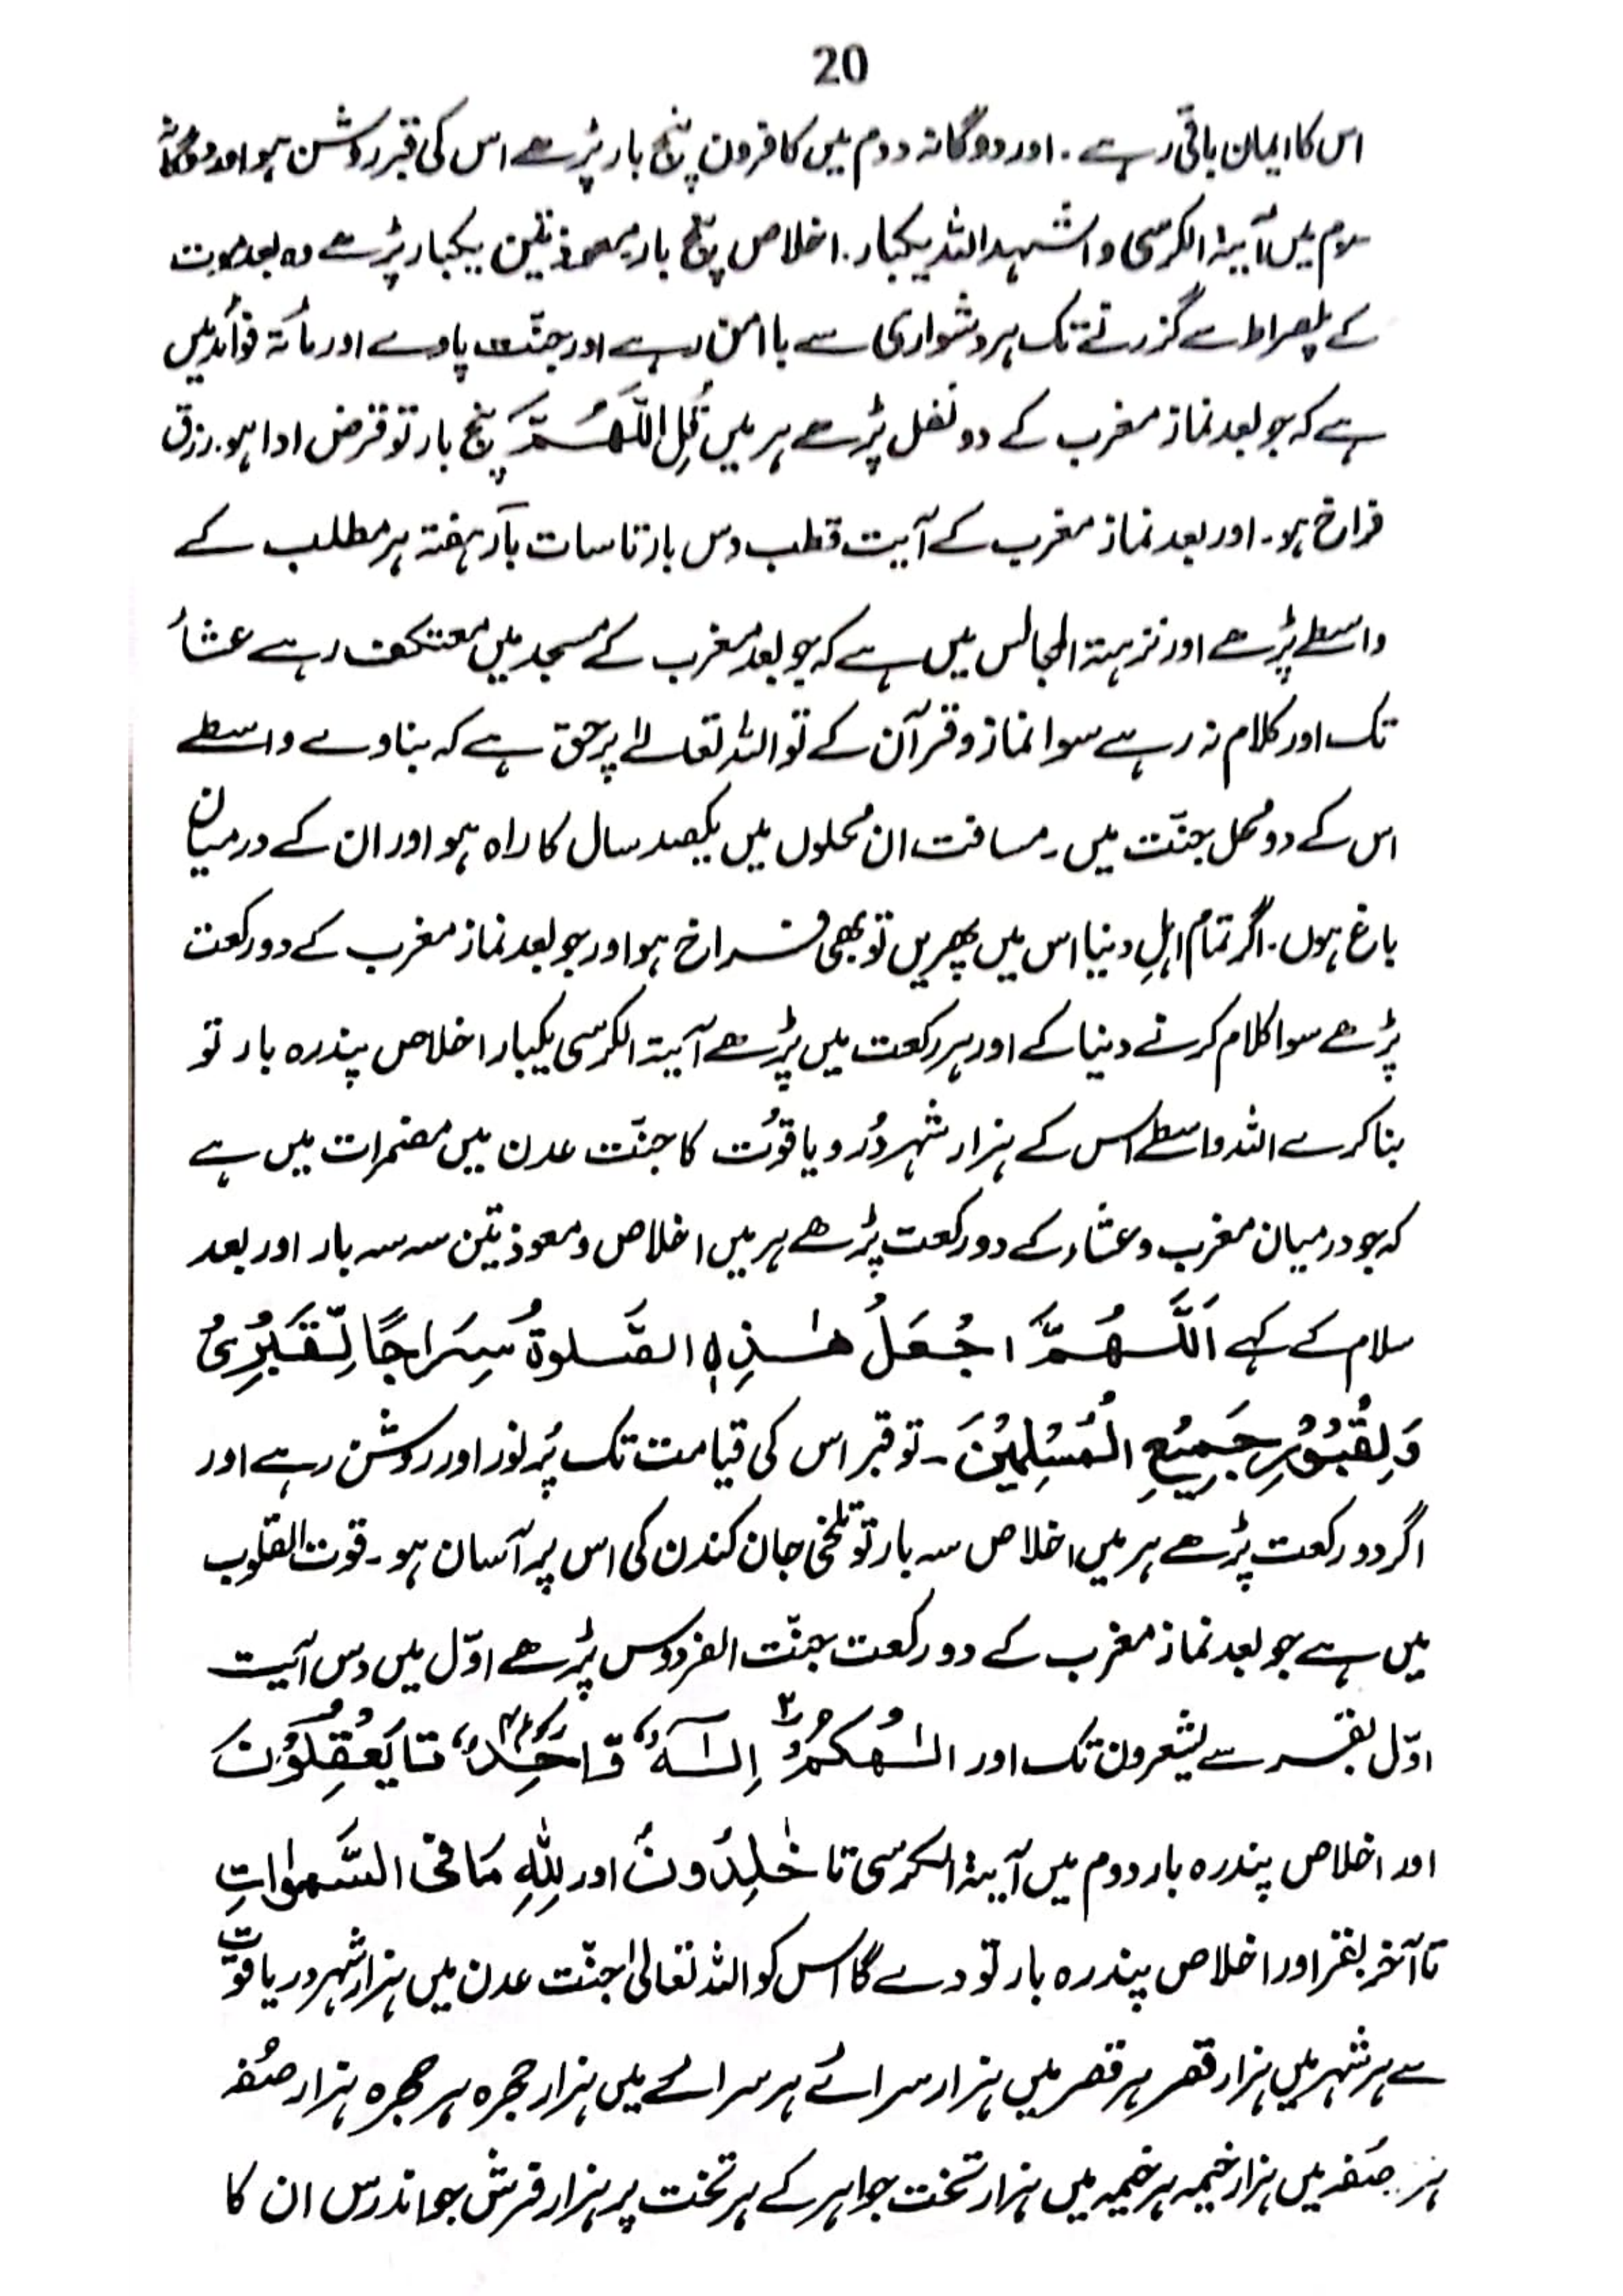 20
اس کا ایمان باقی رہے۔ اور دوگانہ دوم میں کافرون پنج بار پڑھے اس کی قبر روشن ہو اور دوگانہ
سوم میں آیۃ الکرسی و اشہد اللہ یکبار۔ اخلاص پنج بار معوذتین یکبار پڑھے وہ بعد موت
کے پلصراط سے گزرنے تک ہر دشواری سے باامن رہے اور جنّت پاوے اور مأتہ فوائد میں
ہے کہ جو بعد نماز مغرب کے دو نفل پڑھے ہر میں قُلِ اللّٰھُمَّ پنج بار تو قرض ادا ہو۔ رزق
فراخ ہو۔ اور بعد نماز مغرب کے آیت قطب دس بار تا سات بار ہفتہ ہر مطلب کے
واسطے پڑھے اور نزہتہ المجالس میں ہے کہ جو بعد مغرب کے مسجد میں معتکف رہے عشاء
تک اور کلام نہ رہے سوا نماز و قرآن کے تو اللہ تعالےٰ پر حق ہے کہ بنا دے واسطے
اس کے دو محل جنّت میں۔ مسافت ان محلوں میں یکصد سال کا راہ ہو اور ان کے درمیان
باغ ہوں۔ اگر تمام اہلِ دنیا اس میں پھریں تو بھی فراخ ہو اور جو بعد نماز مغرب کے دو رکعت
پڑھے سوا کلام کرنے دنیا کے اور ہر رکعت میں پڑھے آیتہ الکرسی یکبار اخلاص پندرہ بار تو
بنا کرے اللہ واسطے اس کے ہزار شہر دُر و یاقوُت کا جنّت عدن میں مضمرات میں ہے
کہ جو درمیان مغرب و عشاء کے دو رکعت پڑھے ہر میں اخلاص و معوذتین سہ سہ بار اور بعد
سلام کے کہے اَللّٰھُمَّ اجْعَلْ ھٰذِہِ الصَّلوۃُ سِرَاجًا لِّقَبْرِیْ
وَلِقُبُوْرِ جَمِیْعِ الْمُسْلِمِیْنَ۔ تو قبر اس کی قیامت تک پُر نور اور روشن رہے اور
اگر دو رکعت پڑھے ہر میں اخلاص سہ بار تو تلخی جان کندن کی اس پر آسان ہو۔ قوت القلوب
میں ہے جو بعد نماز مغرب کے دو رکعت جنّت الفردوس پڑھے اوّل میں دس آیت
اوّل بقر سے یشعرون تک اور الٰھُکُمْ اِلٰہٌ وَّاحِدٌ تا یَعْقِلُوْنَ
اور اخلاص پندرہ بار دوم میں آیۃ الکرسی تا خٰلِدُونَ اور لِلّٰہِ مَافِی السَّمٰوٰتِ
تا آخر بقر اور اخلاص پندرہ بار تو دے گا اس کو اللہ تعالیٰ جنّت عدن میں ہزار شہر در یاقوت
سے ہر شہر میں ہزار قصر ہر قصر میں ہزار سرائے ہر سرائے میں ہزار حجرہ ہر حجرہ ہزار صُفہ
ہر صُفہ میں ہزار خیمہ ہر خیمہ میں ہزار تخت جواہر کے ہر تخت پر ہزار فرش جو اندرس ان کا